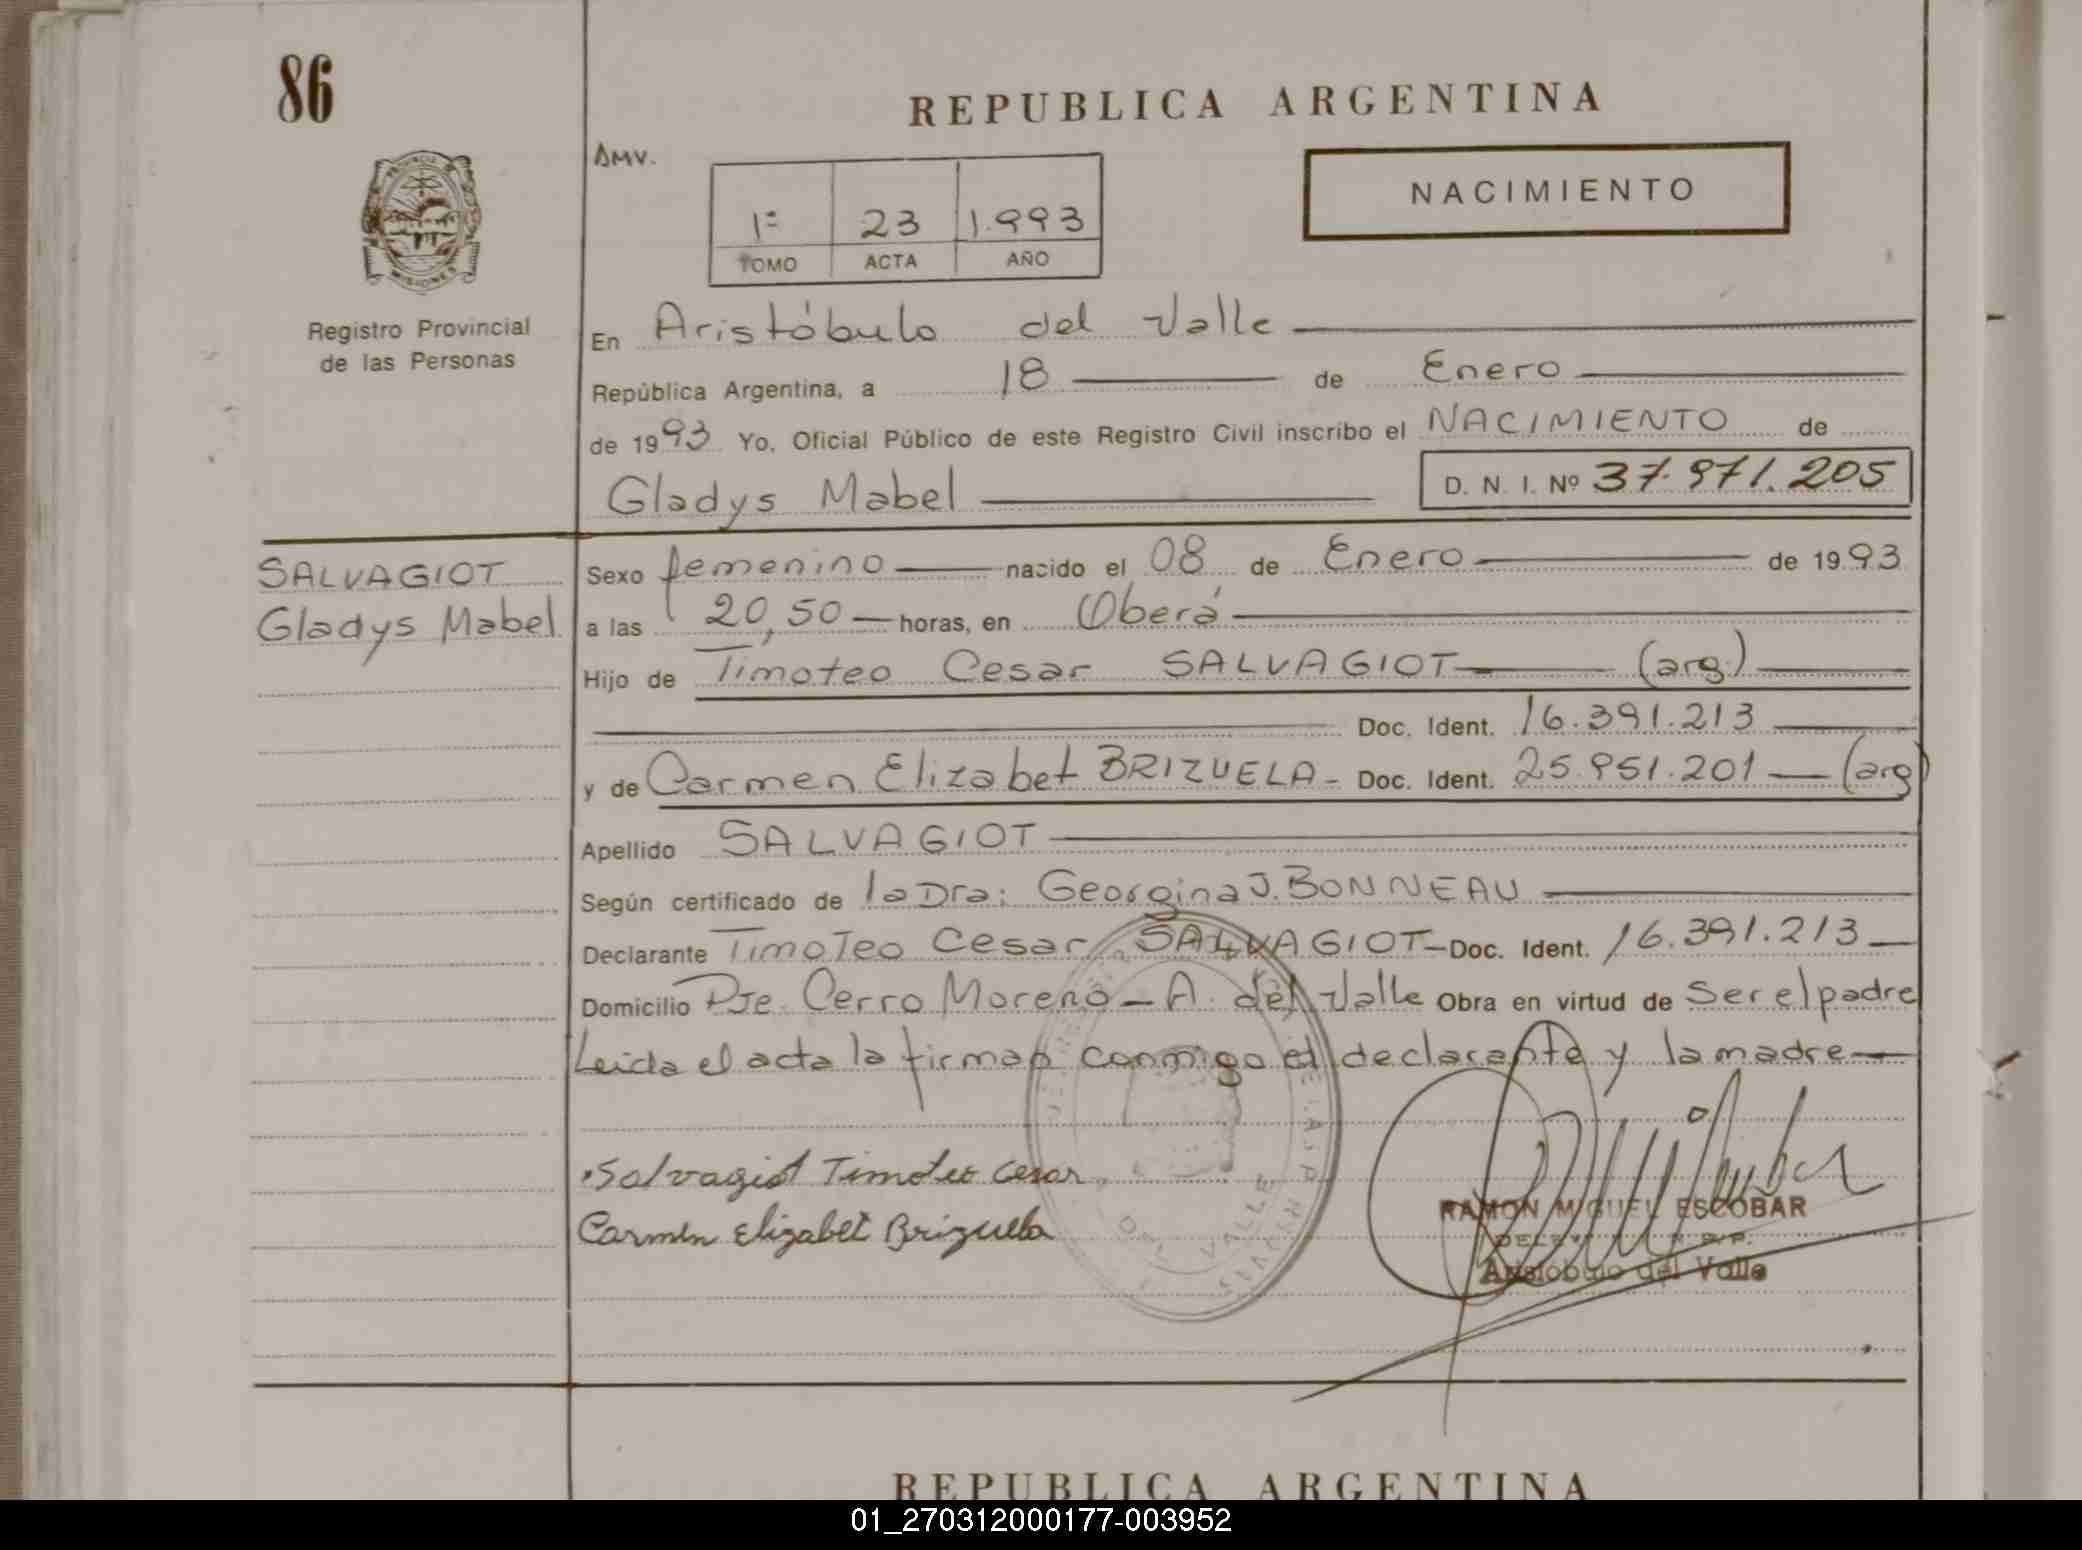 86
REPUBLICA ARGENTINA
AMV.
NACIMIENTO
1º 23 1.993
TOMO ACTA AÑO
Registro Provincial
de las Personas
En Aristóbulo del Valle
República Argentina, a 18 de Enero
de 1993 Yo, Oficial Público de este Registro Civil inscribo el NACIMIENTO de
Gladys Mabel D. N. I. Nº 37.971.205
SALVAGIOT
Gladys Mabel
Sexo femenino nacido el 08 de Enero de 1993
a las 20,50 horas, en Oberá
Hijo de Timoteo Cesar SALVAGIOT (arg.)
Doc. Ident. 16.391.213
y de Carmen Elizabet BRIZUELA - Doc. Ident. 25.951.201 (arg)
Apellido SALVAGIOT
Según certificado de la Dra: Georgina J. BONNEAU
Declarante Timoteo Cesar SALVAGIOT - Doc. Ident. 16.391.213
Domicilio Pje. Cerro Moreno - A. del Valle Obra en virtud de Ser el padre
Leida el acta la firman conmigo el declarante y la madre
Salvagiot Timoteo Cesar
Carmen Elizabet Brizuela
RAMON MIGUEL ESCOBAR
Aristobulo del Valle
REPUBLICA ARGENTINA
01_270312000177-003952